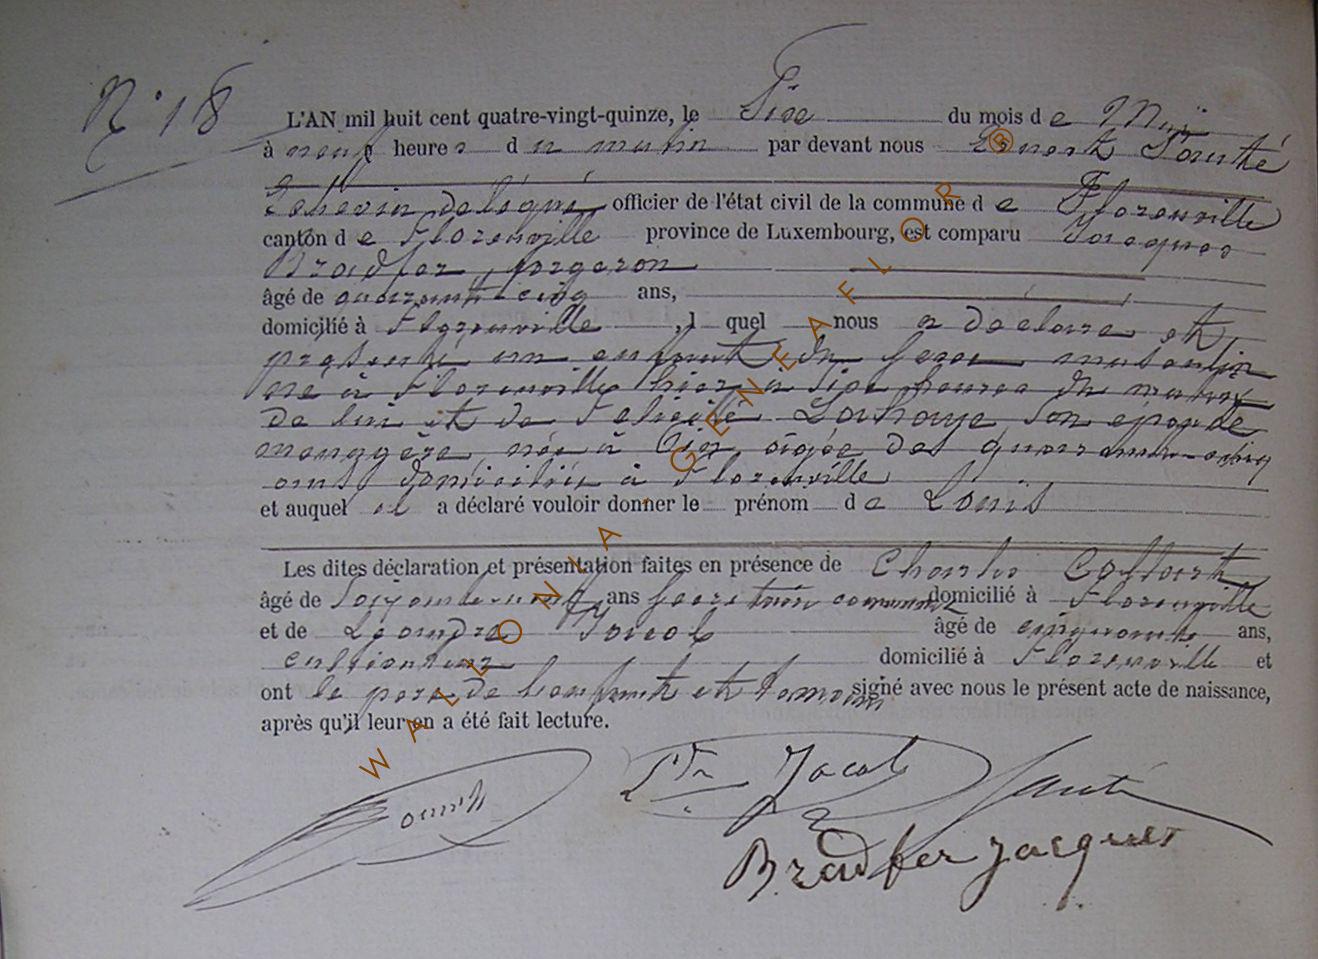 N° 18
L'AN mil huit cent quatre-vingt-quinze, le Six du mois de Mai
à neuf heures du matin par devant nous Ernest Santé
Echevin délégué officier de l'état civil de la commune de Florenville
canton de Florenville province de Luxembourg, est comparu Jacques
Bradfer, forgeron
âgé de quarante-cinq ans,
domicilié à Florenville , l quel nous a déclaré et
présenté un enfant du sexe masculin
né à Florenville hier à six heures du matin
de lui et de Félicité Lahaye son épouse
ménagère, née à âgée de quarante-cinq
ans domiciliée à Florenville
et auquel il a déclaré vouloir donner le prénom de Louis
Les dites déclaration et présentation faites en présence de Charles
âgé de soixante-neuf ans secrétaire communal domicilié à Florenville
et de Léandre Jacob âgé de cinquante ans,
cultivateur domicilié à Florenville et
ont le père de l'enfant et témoins signé avec nous le présent acte de naissance,
après qu'il leur en a été fait lecture.
Jacob Santé
Bradfer Jacques
WALLONIA.GENEAFLOR ®